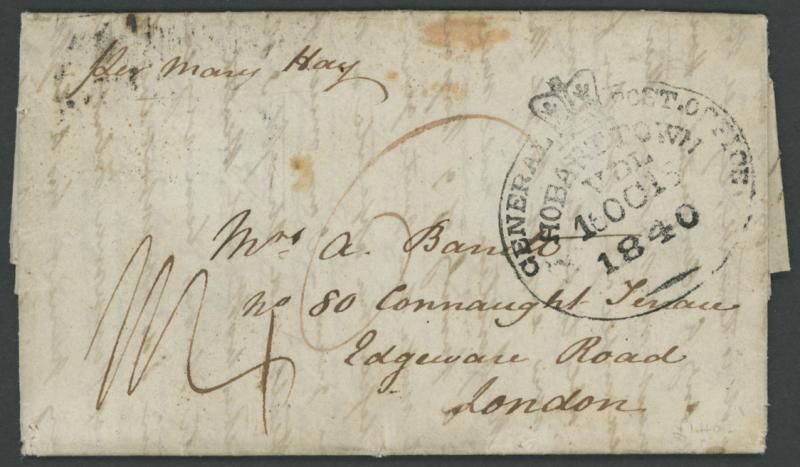 per Mary Hay
GENERAL POST. OFFICE
HOBART TOWN
V.D.L
1 OCT
1840
Mrs A. Barrett
No 80 Connaught Terrace
Edgeware Road
London